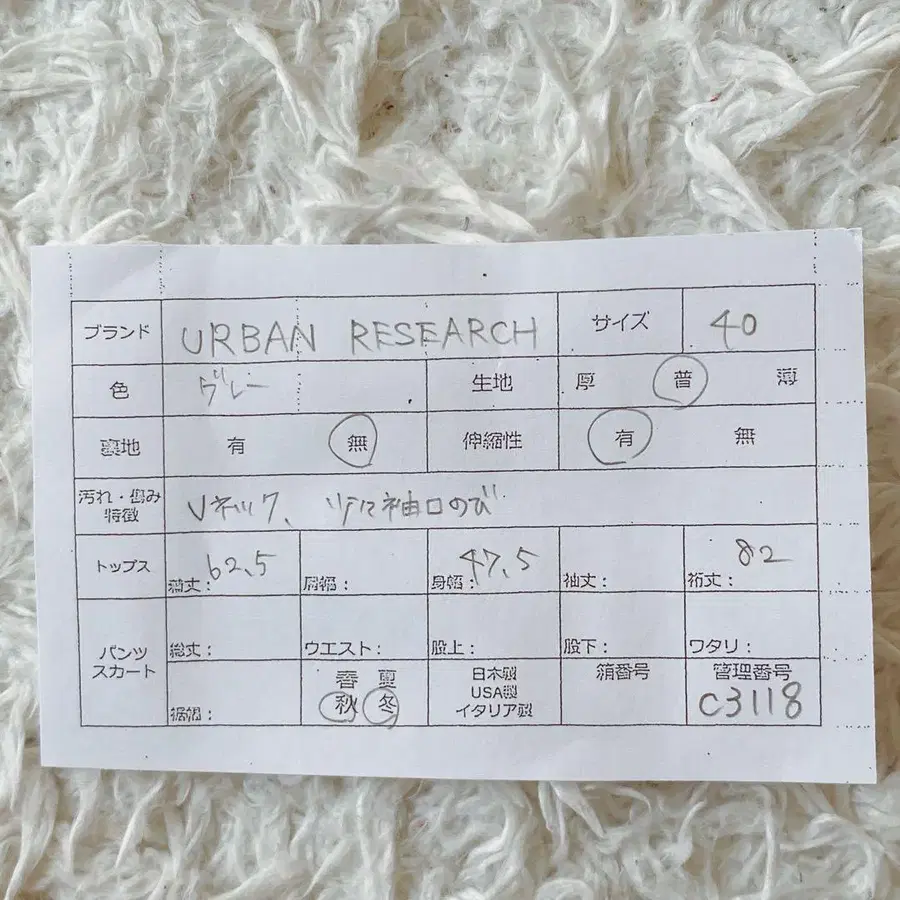 ブランド URBAN RESEARCH サイズ 40
色 グレー 生地 厚 普 薄
裏地 有 無 伸縮性 有 無
汚れ・傷み
特徴 Vネック、 袖口のび
トップス 着丈: 62.5 肩幅: 身幅: 47.5 袖丈: 裄丈: 82
パンツ
スカート 総丈: ウエスト: 股上: 股下: ワタリ:
裾幅: 春 夏 日本製 箱番号 管理番号
秋 冬 USA製 C3118
イタリア製